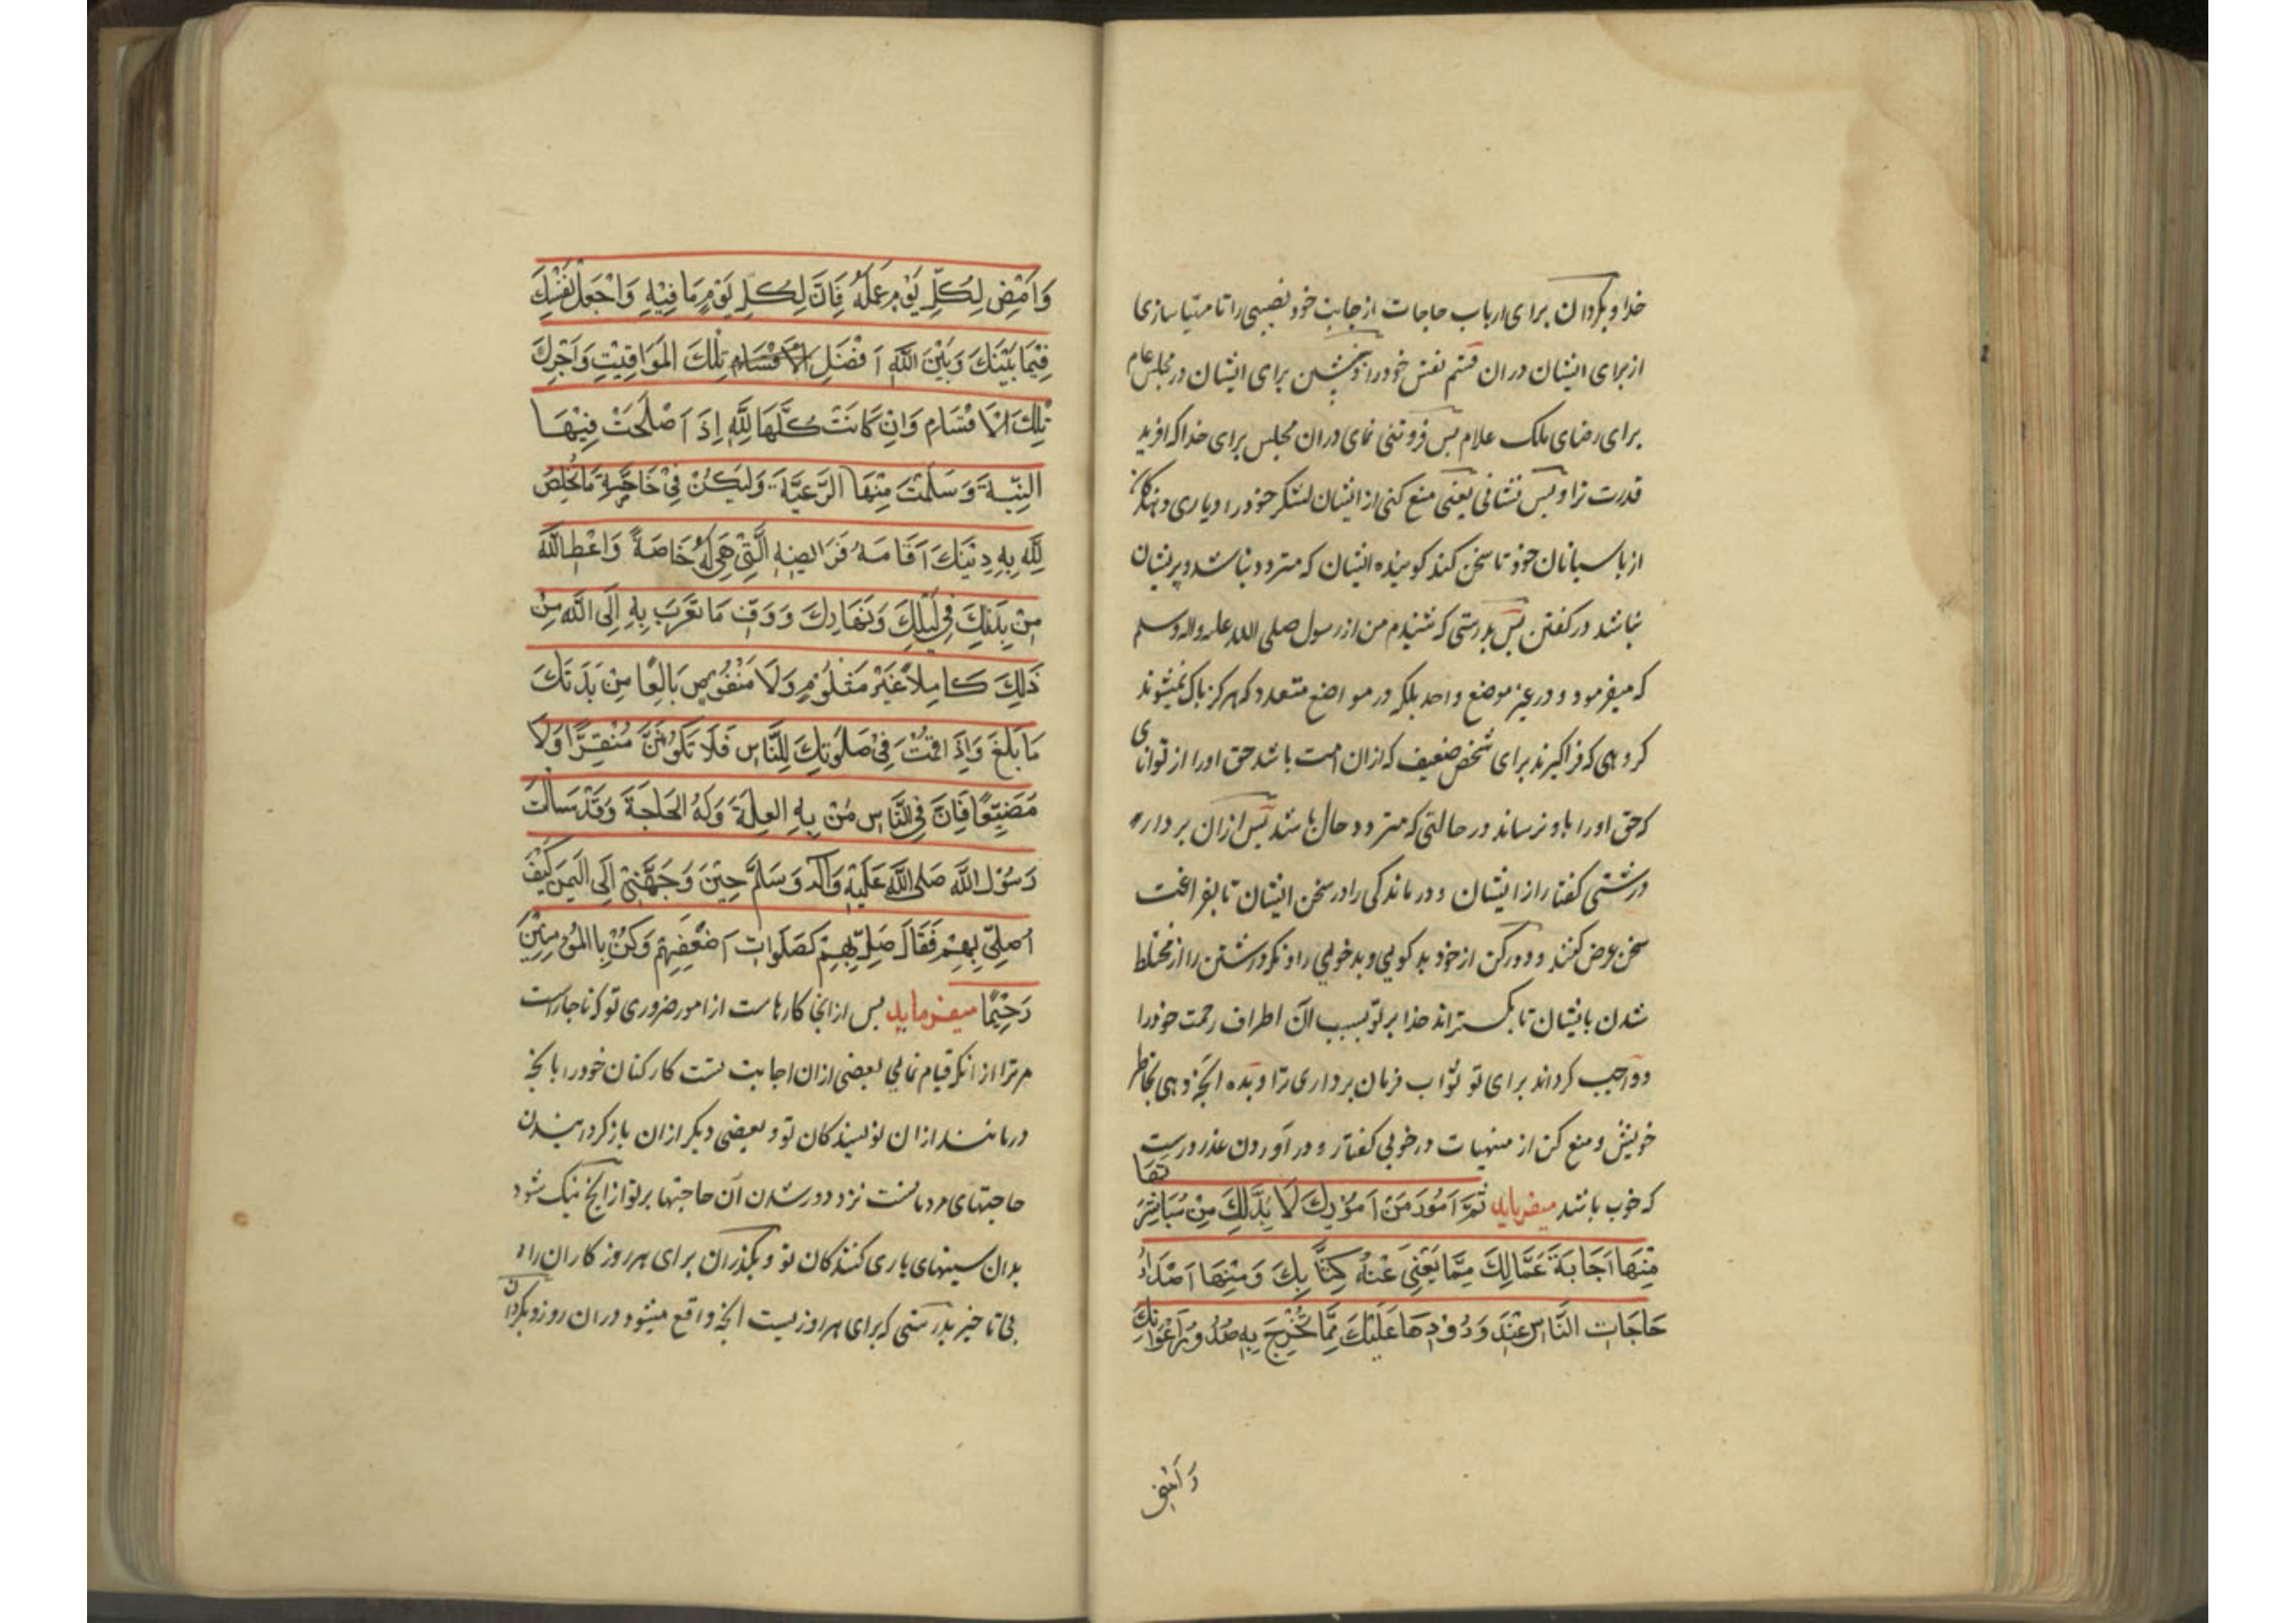 خدا و بگردان برای ارباب حاجات از جانب خود نصیبی را تا مهیا سازی
از برای ایشان در ان قسم نفس خود را و بنشین برای ایشان در مجلس عام
برای رضای ملک علام پس فروتنی نمای در ان مجلس برای خدا که افرید
قدرت ترا و پس نشانی یعنی منع کنی از ایشان لشکر خود را و یاری دهنده کان
از پاسبانان خود تا سخن کند کوینده ایشان که متردد نباشد و پریشان
نباشد در کفتن پس بدرستی که شنیدم من از رسول صلی الله علیه واله وسلم
که میفرمود و در غیر موضع واحد بلکه در مواضع متعدد که هرکز پاک نمیشوند
کروهی که فرا گیرند برای شخص ضعیف که از ان امت باشد حق او را از توانای
که حق او را باو نرساند در حالتی که متردد حال باشد پس ازان بردار
درشتی کفتار از ایشان و درماندکی را در سخن ایشان تا بفراغت
سخن عرض کنند و دور کن از خود بد کویی و بد خویی را و نکرداشتن را از مختلط
شدن بایشان تا بگستراند خدا بر تو بسبب آن اطراف رحمت خود را
و واجب کرداند برای تو ثواب فرمان برداری ترا و بده انچه دهی بخاطر
خویش و منع کن از منهیات در خوبی کفتار و در آوردن عذر درست
که خوب باشد میفرماید ثُمَّ اَمُورَ مَنْ اَمُوْرِكَ لَا بُدَّلَكَ مِنْ مُبَاشِرَ تهَا
مِنْهَا اَجَابَةَ عُمَّالِكَ مِمَّا يَعْنِىَ عَنْهُ كِتَّا بِكَ وَمِنْهَا اَصْدَارُ
حَاجَاتِ النَّاسِ عِنْدَ وَرُوْدِهَا عَلَيْكَ مِمَّا تُخْرِجَ بِهِ صُدُورَ اَعْوَانِكَ
وَ اَمْضِ
وَاَمْضِ لِكُلِّ يَوْمٍ عَمَلَهُ فَاِنَّ لِكُلِّ يَوْمٍ مَا فِيْهِ وَاجْعَلْ لِنَفْسِكَ
فِيْمَا بَيْنَكَ وَبَيْنَ اللّٰهِ اَفْضَلَ الاَقْسَام تِلْكَ المَوَاقِيْتِ وَاَجْزِكَ
تِلْكَ الْاَقْسَامِ وَاِنْ كَانَتْ كُلُّهَا لِلّٰهِ اِذَ اَصْلَحَتْ فِيْهَا
النِيَّةَ وَ سَلِمَتْ مِنْهَا الرَّعِيَّةَ وَلْيَكُنْ فِىْ خَاصَّةِ مَا تُخْلِصُ
لِلّٰهِ بِهِ دِيْنَكَ اَقَامَهُ فَرَائِضِهِ الَّتِىْ هِىَ لَهُ خَاصَةً وَاَعْطِ اللّٰهَ
مِنْ بَدَنِكَ فِى لَيْلِكَ وَنَهَارِكَ وَ وَفِّ مَا تَقَرَبَ بِهِ اِلَى اللّٰهِ مِنْ
ذٰلِكَ كَامِلاً غَيْرَ مَثْلُوْمٍ وَلَا مَنْقُوْصٍ بَالِغًا مِنْ بَدَنَكَ
مَا بَلَغَ وَاِذَ اقمْتُ فِىْ صَلٰوتِكَ لِلنَّاسِ فَلَا تَكُوْنَنَّ مُنَفِّرًا وَلَا
مُضَيِّعًا فَاِنَّ فِى النَّاسِ مَنْ بِهِ العِلَةَ وَلَهُ الحَاجَةَ وَقَدْ سَاَلْتَ
رَسُوْلَ اللّٰهَ صَلى اللّٰهُ عَلَيْهِ وَآلِهِ وَسَلَّمَ حِيْنَ وَجَهَّنِىْ اِلَى اليَمَنِ كَيْفَ
اُصَلِّىْ بِهِمْ فَقَالَ صَلِّ بِهِمْ كَصَلَوَاتِ اَضْعَفِهِمْ وَكُنْ بِاالمُؤْمِنِيْنَ
رَحِيْمًا میفرماید پس از انجا کارهاست از امور ضروری تو که ناچار است
مر ترا از انکه قیام نمایی بعضی ازان اجابت تست کارکنان خود را بانچه
درمانند ازان نویسندکان تو و بعضی دیکر ازان باز کردانیدن
حاجتهای مردمانست نزد وورشدن آن حاجتها بر تو از انچه تنک شود
بدان سینهای یاری کنندکان تو و بگذران برای هر روز کار ان را
بی تاخیر بدرستی که برای هر روزیست انچه واقع میشود در ان روز و بگردان